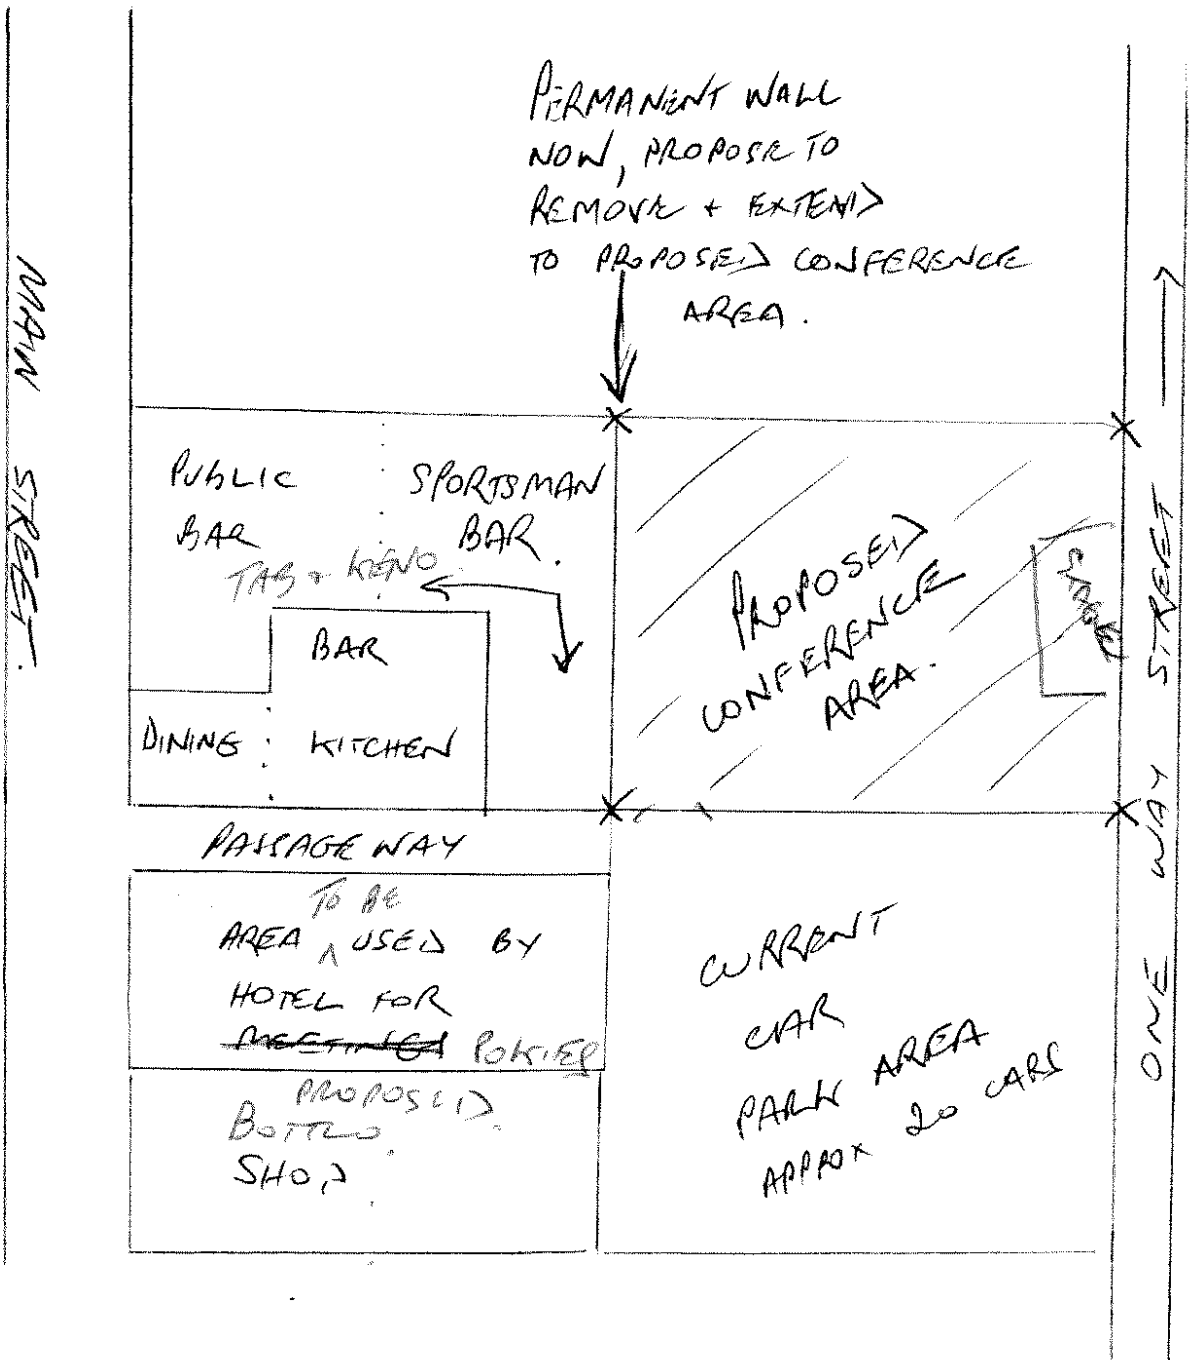 PERMANENT WALL
NOW, PROPOSE TO
REMOVE + EXTEND
TO PROPOSED CONFERENCE
AREA.
MAIN STREET.
PUBLIC
BAR
SPORTSMAN
BAR.
TAB + KENO
BAR
DINING
KITCHEN
PROPOSED
CONFERENCE
AREA.
ONE WAY STREET
PASSAGE WAY
TO BE
AREA ^ USED BY
HOTEL FOR
MEETINGS POKIES
PROPOSED
BOTTLO
SHOP
CURRENT
CAR
PARK AREA
APPROX 20 CARS